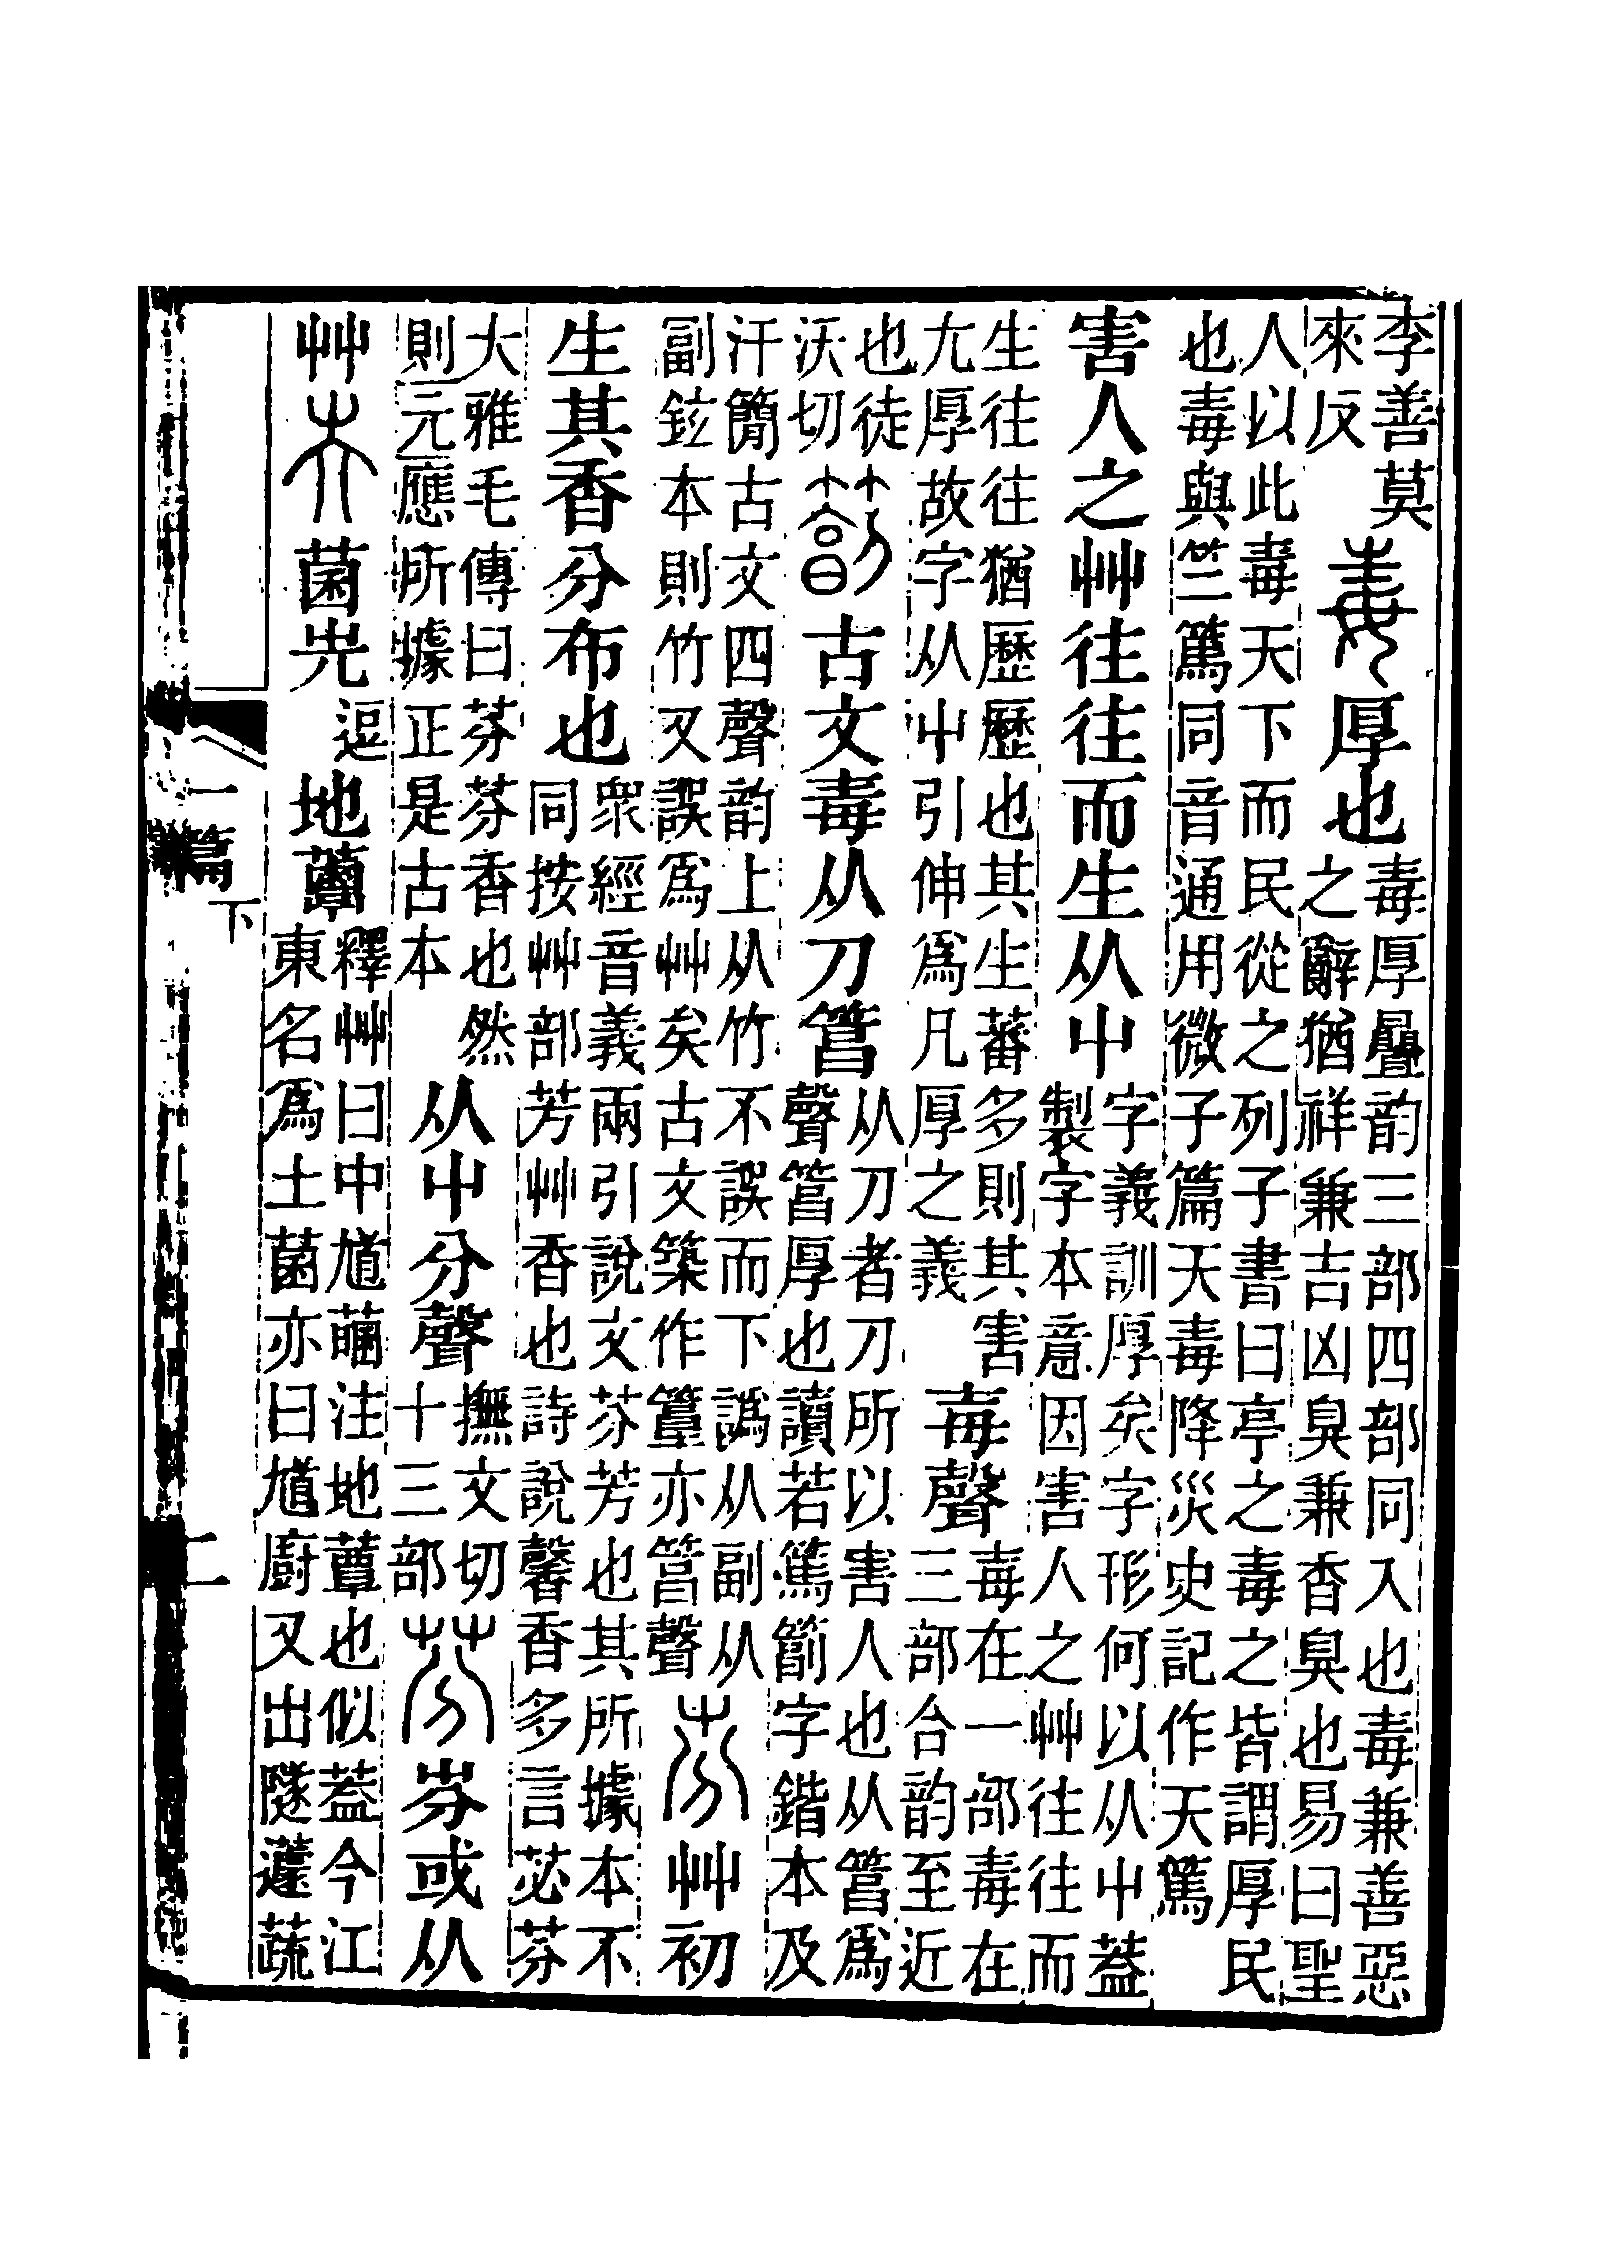 李善莫
來反
毒厚也
毒厚曡韵三部四部同入也毒兼善惡
之辭猶祥兼吉凶臭兼香臭也易曰聖
人以此毒天下而民從之列子書曰亭之毒之皆謂厚民
也毒與竺篤同音通用微子篇天毒降災史記作天篤
害人之艸往往而生从屮
字義訓厚矣字形何以从屮蓋
製字本意因害人之艸往往而
生往往猶歷歷也其生蕃多則其害
尢厚故字从屮引伸爲凡厚之義
毒聲
毒在一部毒在
三部合韵至近
也徒
沃切
𥳓古文毒从刀𥫡
从刀者刀所以害人也从𥫡爲
聲𥫡厚也讀若篤𥳓字鍇本及
汗簡古文四聲韵上从竹不誤而下譌从副从
副鉉本則竹又誤爲艸矣古文築作𥴦亦𥫡聲
芬艸初
生其香分布也
衆經音義兩引說文芬芳也其所據本不
同按艸部芳艸香也詩說馨香多言苾芬
大雅毛傳曰芬芬香也然
則元應所據正是古本
从屮分聲
撫文切
十三部
芬芬或从
艸𡴆菌𡴆
逗
地蕈
釋艸曰中馗菌注地蕈也似蓋今江
東名爲土菌亦曰馗廚又出隧蘧蔬
一篇下
二